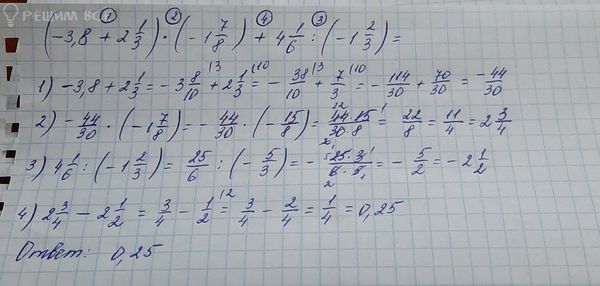 РЕШИМ ВСЁ
① ② ④ ③
(-3,8 + 2 1/3) · (-1 7/8) + 4 1/6 : (-1 2/3) =
1) -3,8 + 2 1/3 = -3 8/10 + 2 1/3 = -38/10 + 7/3 = -114/30 + 70/30 = -44/30
2) -44/30 · (-1 7/8) = -44/30 · (-15/8) = 44·15/30·8 = 22/8 = 11/4 = 2 3/4
3) 4 1/6 : (-1 2/3) = 25/6 : (-5/3) = -25·3/6·5 = -5/2 = -2 1/2
4) 2 3/4 - 2 1/2 = 3/4 - 1/2 = 3/4 - 2/4 = 1/4 = 0,25
Ответ: 0,25